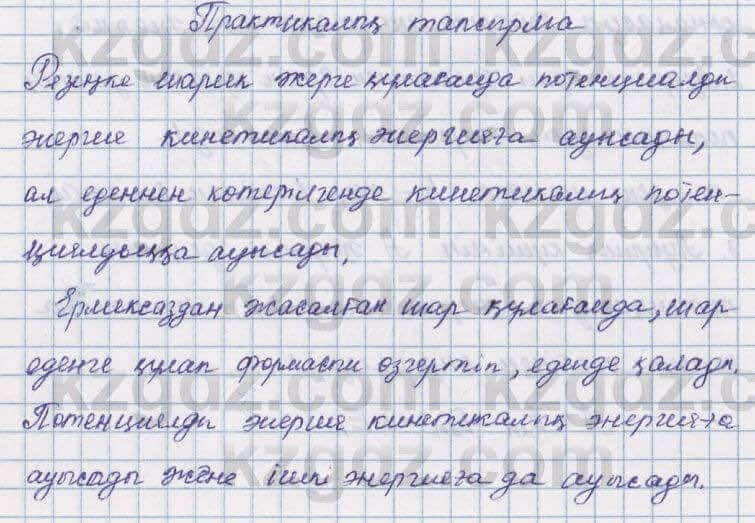 Практикалық тапсырма
Резеңке шарик жерге құлағанда потенциалды
энергия кинетикалық энергияға ауысады,
ал еденнен көтерілгенде кинетикалық потен-
циялдыққа ауысады,
Ермексаздан жасалған шар құлағанда, шар
еденге құлап формасын өзгертіп, еденде қалады.
Потенциялды энергия кинетикалық энергияға
ауысады және ішкі энергияға да ауысады.
kzgdz.com